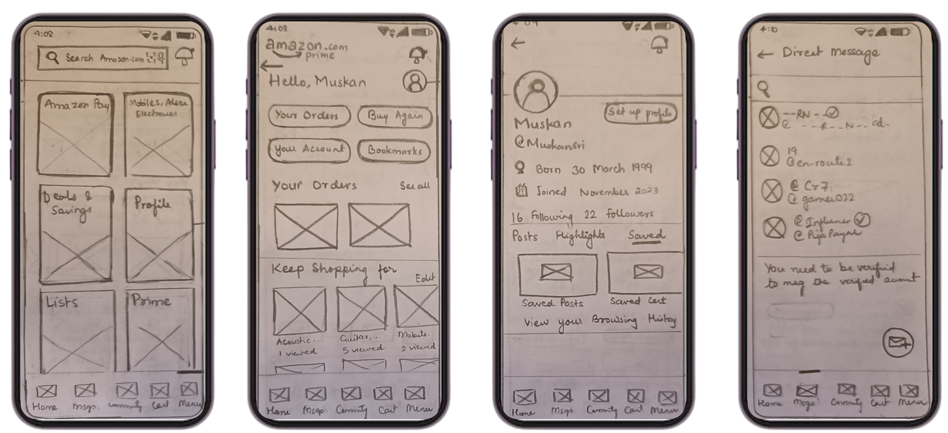 4:08
Search Amazon.com
Amazon Pay
Mobiles, Alexa
Electronics
Deals &
Savings
Profile
Lists
Prime
Home
Msgs
Community
Cart
Menu
4:08
amazon.com
prime
Hello, Muskan
Your Orders
Buy Again
Your Account
Bookmarks
Your Orders
See all
Keep Shopping for
Edit
Acoustic...
1 viewed
Guitar,...
5 viewed
Mobile..
2 viewed
Home
Msgs
Community
Cart
Menu
4:09
Set up profile
Muskan
Born 30 March 1999
Joined November 2023
16 Following 22 followers
Posts
Highlights
Saved
Saved Posts
Saved Cart
View your Browsing History
Home
Msgs
Community
Cart
Menu
Direct Message
19
@en-route2
@ Cr7
@ gamer022
You need to be verified
to msg the verified
Home
Msgs
Community
Cart
Menu